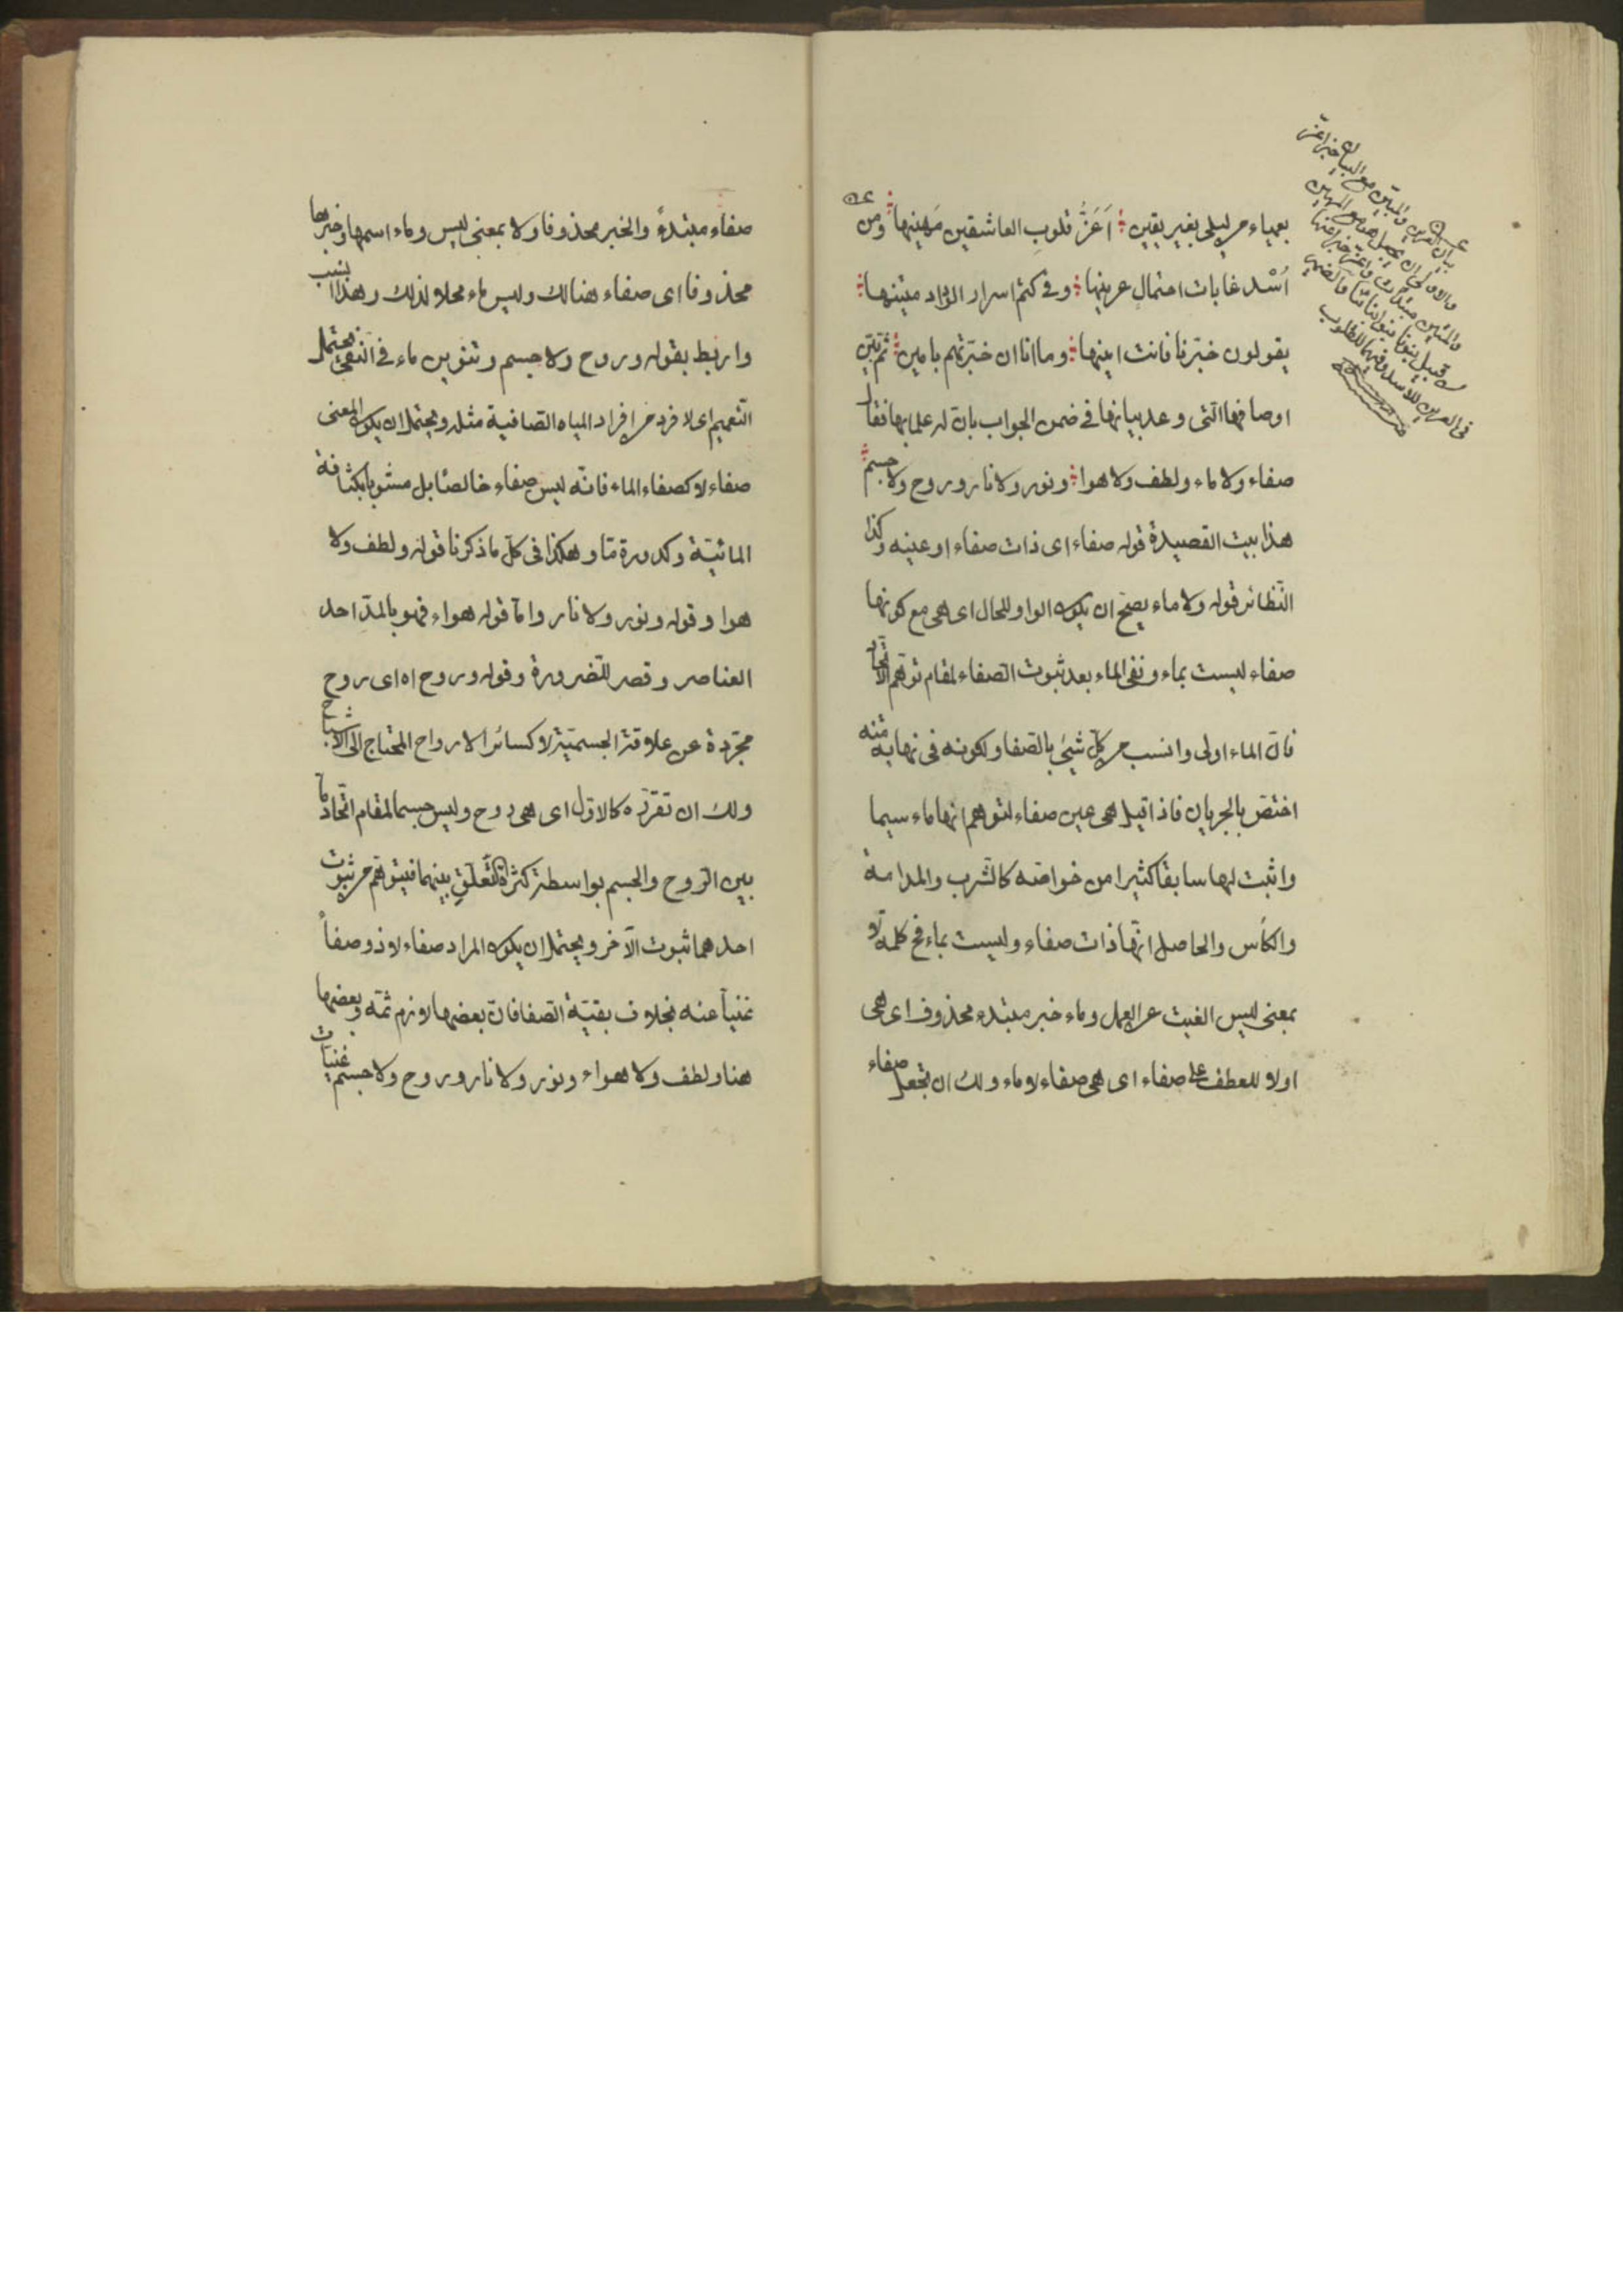 بعمياء من ليلى بغير يقين ؛ اَعَزُّ قلوب العاشقين مَهينها ؛ ومن
اُسْد غابات احتمال عرينها ؛ وفى كتم اسرار الوداد متينها ؛
يقولون خبّرنا فانت امينها ؛ وما انا ان خبّرتهم بامين ؛ ثم بيّن
اوصافها التى وعد ببيانها فى ضمن الجواب بان له علما بها فقال
صفاء ولا ماء ولطف ولا هوا ؛ ونور ولا نار وروح ولا جسم
هذا بيت القصيدة قوله صفاء اى ذات صفاء او عينه وكذا
النّظائر قوله ولا ماء يصحّ ان يكون الواو للحال اى هى مع كونها
صفاء ليست بماء ونفى الماء بعد ثبوت الصفاء لمقام توهّم الاتحاد
فانّ الماء اولى وانسب من كلّ شيئ بالصّفا ولكونه فى نهاية منه
اختصّ بالجريان فاذا قيل هى عين صفاء لتوهم انها ماء سيما
واثبت لها سابقا كثيرا من خواصّه كالشّرب والمدامة
والكأس والحاصل انّها ذات صفاء وليست بماء فح كلمة لا
بمعنى ليس الغيت عن العمل وماء خبر مبتدء محذوف اى هى
اولا للعطف على صفاء اى هى صفاء لا ماء ولك ان تجعل صفاء
بيان العرين والمتين مع
والاولى ان يجعل هنا مع المهين
والمتين مبتدآت واعزّ خبر اعنها
فى العرين للأسد وفيهما للقلوب
صفاء مبتدءً والخبر محذوفا ولا بمعنى ليس وماء اسمها وخبرها
محذوفا اى صفاء هنالك وليس ماء محلا لذلك وهذا انسب
واربط بقوله وروح ولا جسم وتنوين ماء فى النفى يحتمل
التّعميم اى لا فرد من افراد المياه الصّافية مثله ويحتمل ان يكون المعنى
صفاء لا كصفاء الماء فانّه ليس صفاء خالصًا بل مشوبا بكثافة
المائيّة وكدورة مّا وهكذا فى كلّ ما ذكرنا قوله ولطف ولا
هوا وقوله ونور ولا نار وامّا قوله هواء فهو بالمدّ احد
العناصر وقصر للضّرورة وقوله وروح اه اى روح
مجرّدة عن علاقة الجسميّة لا كسائر الارواح المحتاج الى الاشباح
ولك ان تقرّره كالاوّل اى هى روح وليس جسما لمقام اتّحاد ما
بين الرّوح والجسم بواسطة كثرة التّعلّق بينهما فيتوهّم من ثبوت
احدهما ثبوت الآخر ويحتمل ان يكون المراد صفاء لا ذو صفاً
غنياً عنه بخلاف بقيّة الصّفا فانّ بعضها لازم ثمّه وبعضها
هنا ولطف ولا هواء ونور ولا نار وروح ولا جسم غنيات